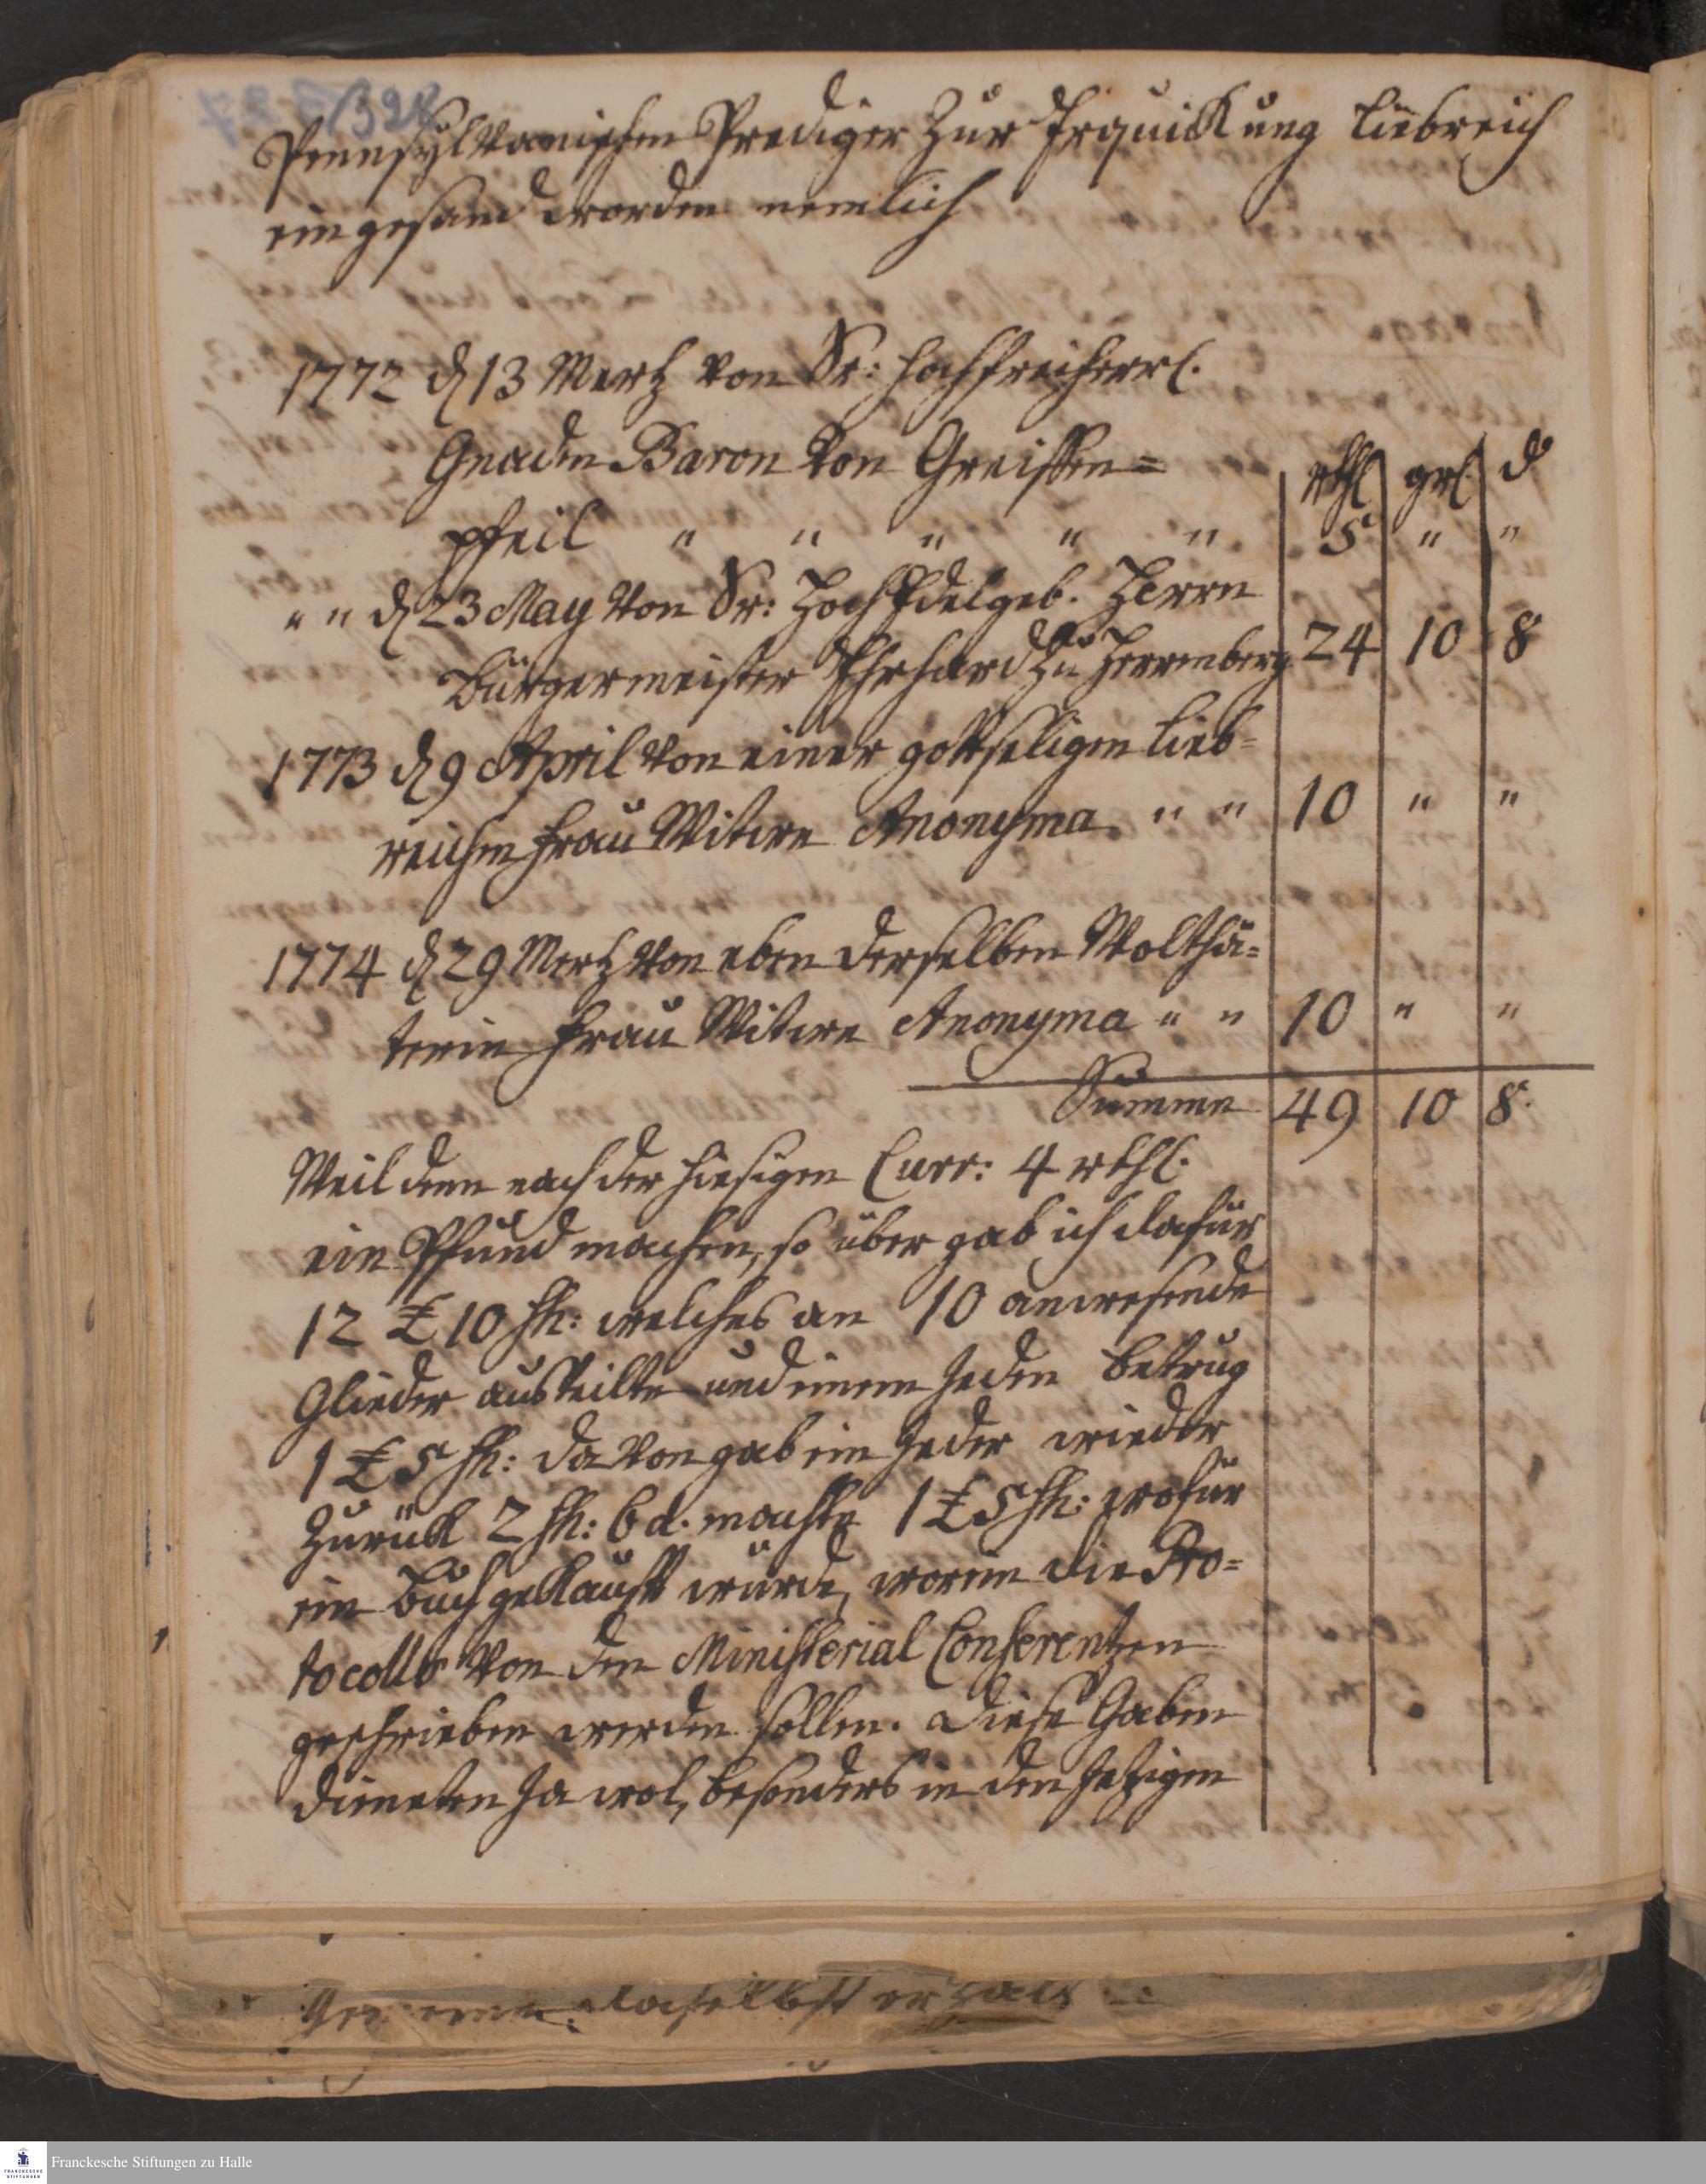 1398
Pennsylvanischen Prediger zur Erquickung liebreich
eingesand worden nemlich
1772 d 13 Mertz von Sr: Hochfreiherrl.
Gnaden Baron von Greiffen= rthl grl. d
pfeil " " " " " 5 " "
" " d 23 May von Sr: HochEdelgeb. Herrn
Bürgermeister Ehrhard zu Herrenberg 24 10 8
1773 d 9 April von einer gottseligen lieb=
reichen Frau Witwe Anonyma " " 10 " "
1774 d 29 Mertz von eben derselben Wolthä=
terin Frau Witwe Anonyma " " 10 " "
Summe 49 10 8.
Weil denn nach der hiesigen Curr: 4 rthl.
ein Pfund machen, so über gab ich dafür
12 £ 10 sh: welches an 10 anwesende
Glieder austeilte und einem Jeden betrug
1 £ 5 sh: davon gab ein Jeder wieder
zurück 2 sh: 6 d. machte 1 £ 5 sh: wofür
ein Buch gekauft würde, worein die Pro=
tocolle von den Ministerial Conferentzen
geschrieben werden sollen. Diese Gaben
dieneten Ja wol, besonders in den Jetzigen
daselbst
Franckesche Stiftungen zu Halle